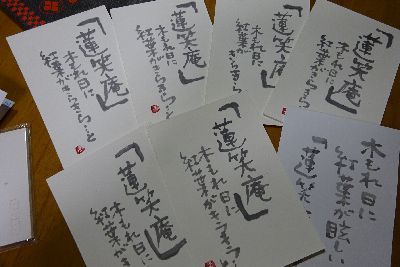 「蓮笑庵」
木もれ日に
紅葉がきらきらと
「蓮笑庵」
木もれ日に
紅葉がきらきらと
「蓮笑庵」
木もれ日に
紅葉が
きらきら
「蓮笑庵」
木もれ日に
紅葉がきらきら
「蓮笑庵」
木もれ日に
紅葉がき
「蓮笑庵」
木もれ日に
紅葉がキラキラ
木もれ日に
紅葉が眩しい
「蓮笑